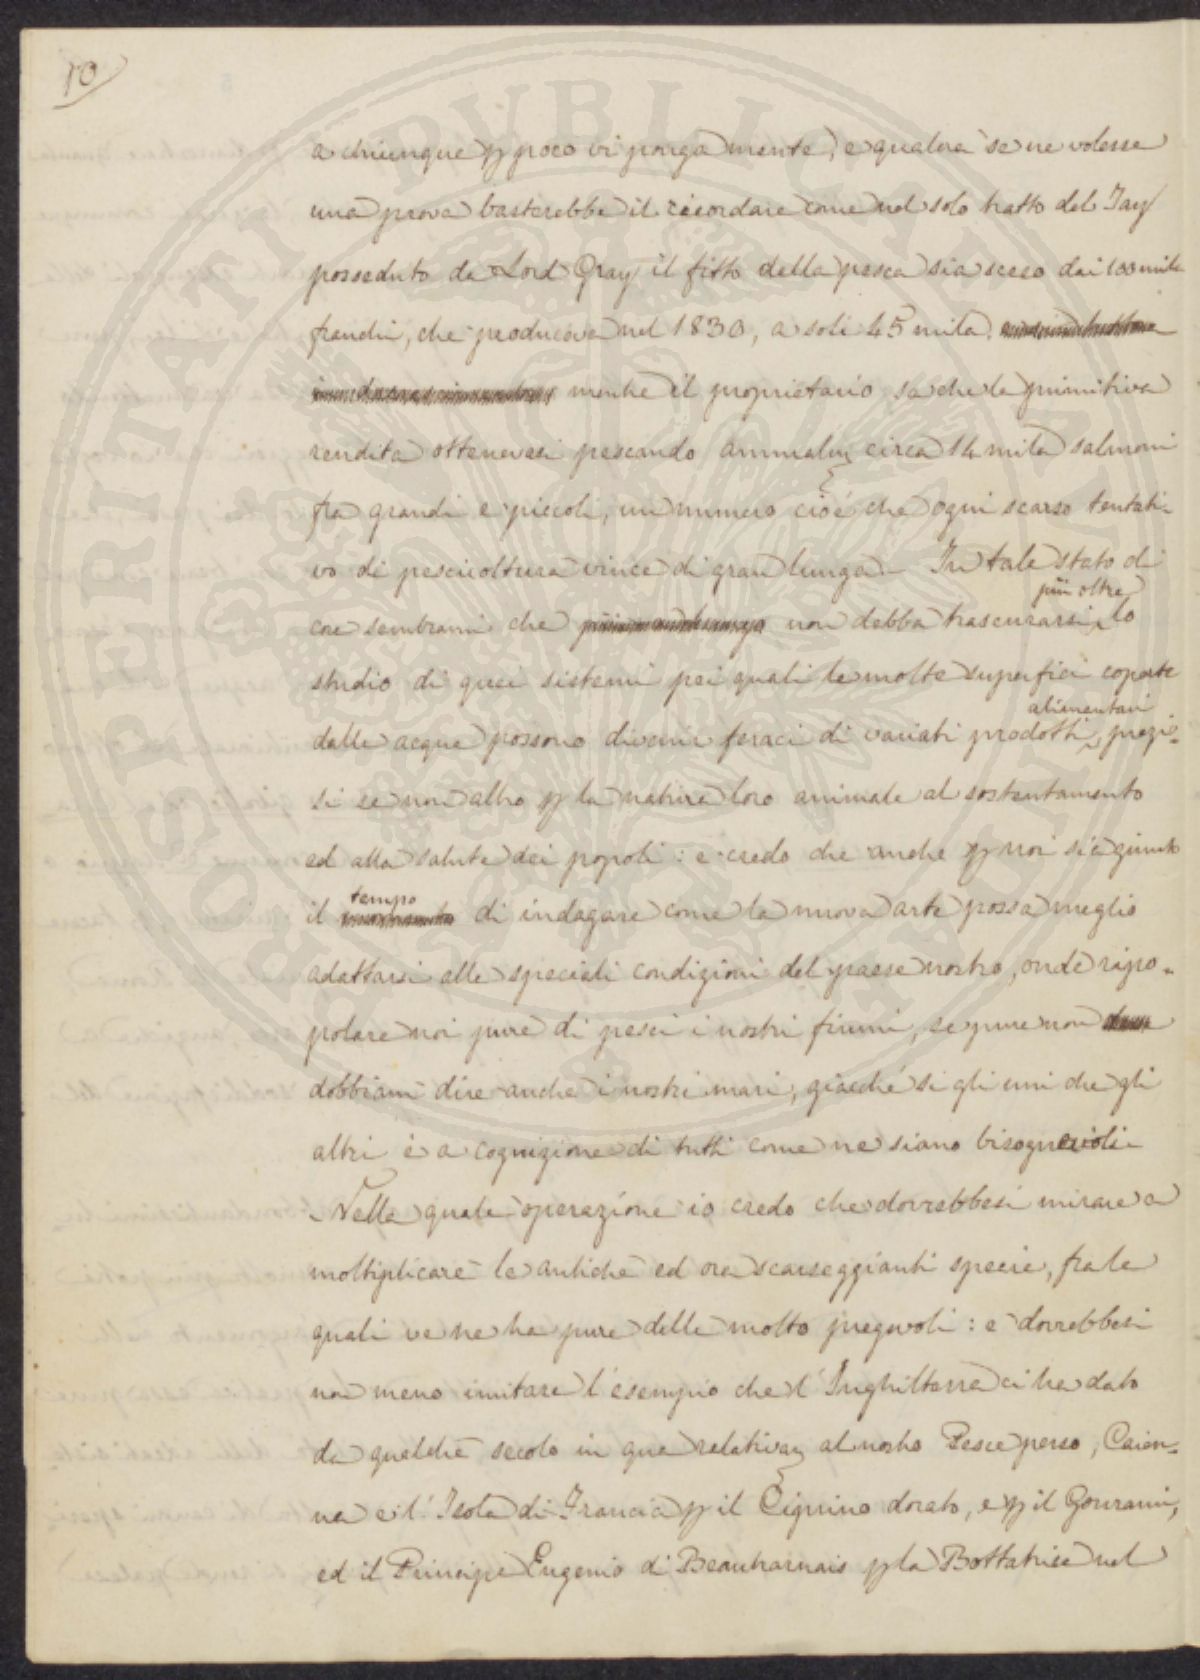 10
a chiunque p poco vi ponga mente, e qualora se ne volesse
una prova basterebbe il ricordare come nel solo tratto del Tay
posseduto da Lord Gray il fitto della pesca sia sceso dai 100 mila
franchi, che produceva nel 1830, a soli 45 mila.
mentre il proprietario sa che la primitiva
rendita ottenevasi pescando annualm circa 14 mila salmoni
fra grandi e piccoli, un numero cioè che ogni scarso tentati-
vo di pescicoltura vince di gran lunga. - In tale stato di
più oltre
cose sembrami che non debba trascurarsi lo
studio di quei sistemi pei quali le molte superfici coperte
alimentari
dalle acque possono divenir feraci di variati prodotti, prezio-
si se non altro p la natura loro animale al sostentamento
ed alla salute dei popoli: e credo che anche p noi sia giunto
tempo
il di indagare come la nuova arte possa meglio
adattarsi alle speciali condizioni del paese nostro, onde ripo-
polare noi pure di pesci i nostri fiumi, se pure non
dobbiam dire anche i nostri mari, giacché si gli uni che gli
altri è a cognizione di tutti come ne siano bisognevoli
Nella quale operazione io credo che dovrebbesi mirare a
moltiplicare le antiche ed ora scarseggianti specie, fra le
quali ve ne ha pure delle molto pregevoli: e dovrebbesi
non meno imitare l'esempio che l'Inghilterra ci ha dato
da qualche secolo in qua relativam al nostro Pesce perso, Caien-
na e l'Isola di Francia p il Ciprino dorato, e p il Gourami,
ed il Principe Eugenio di Beauharnais p la Bottatrice nel
PROSPERITATI PUBLICAE